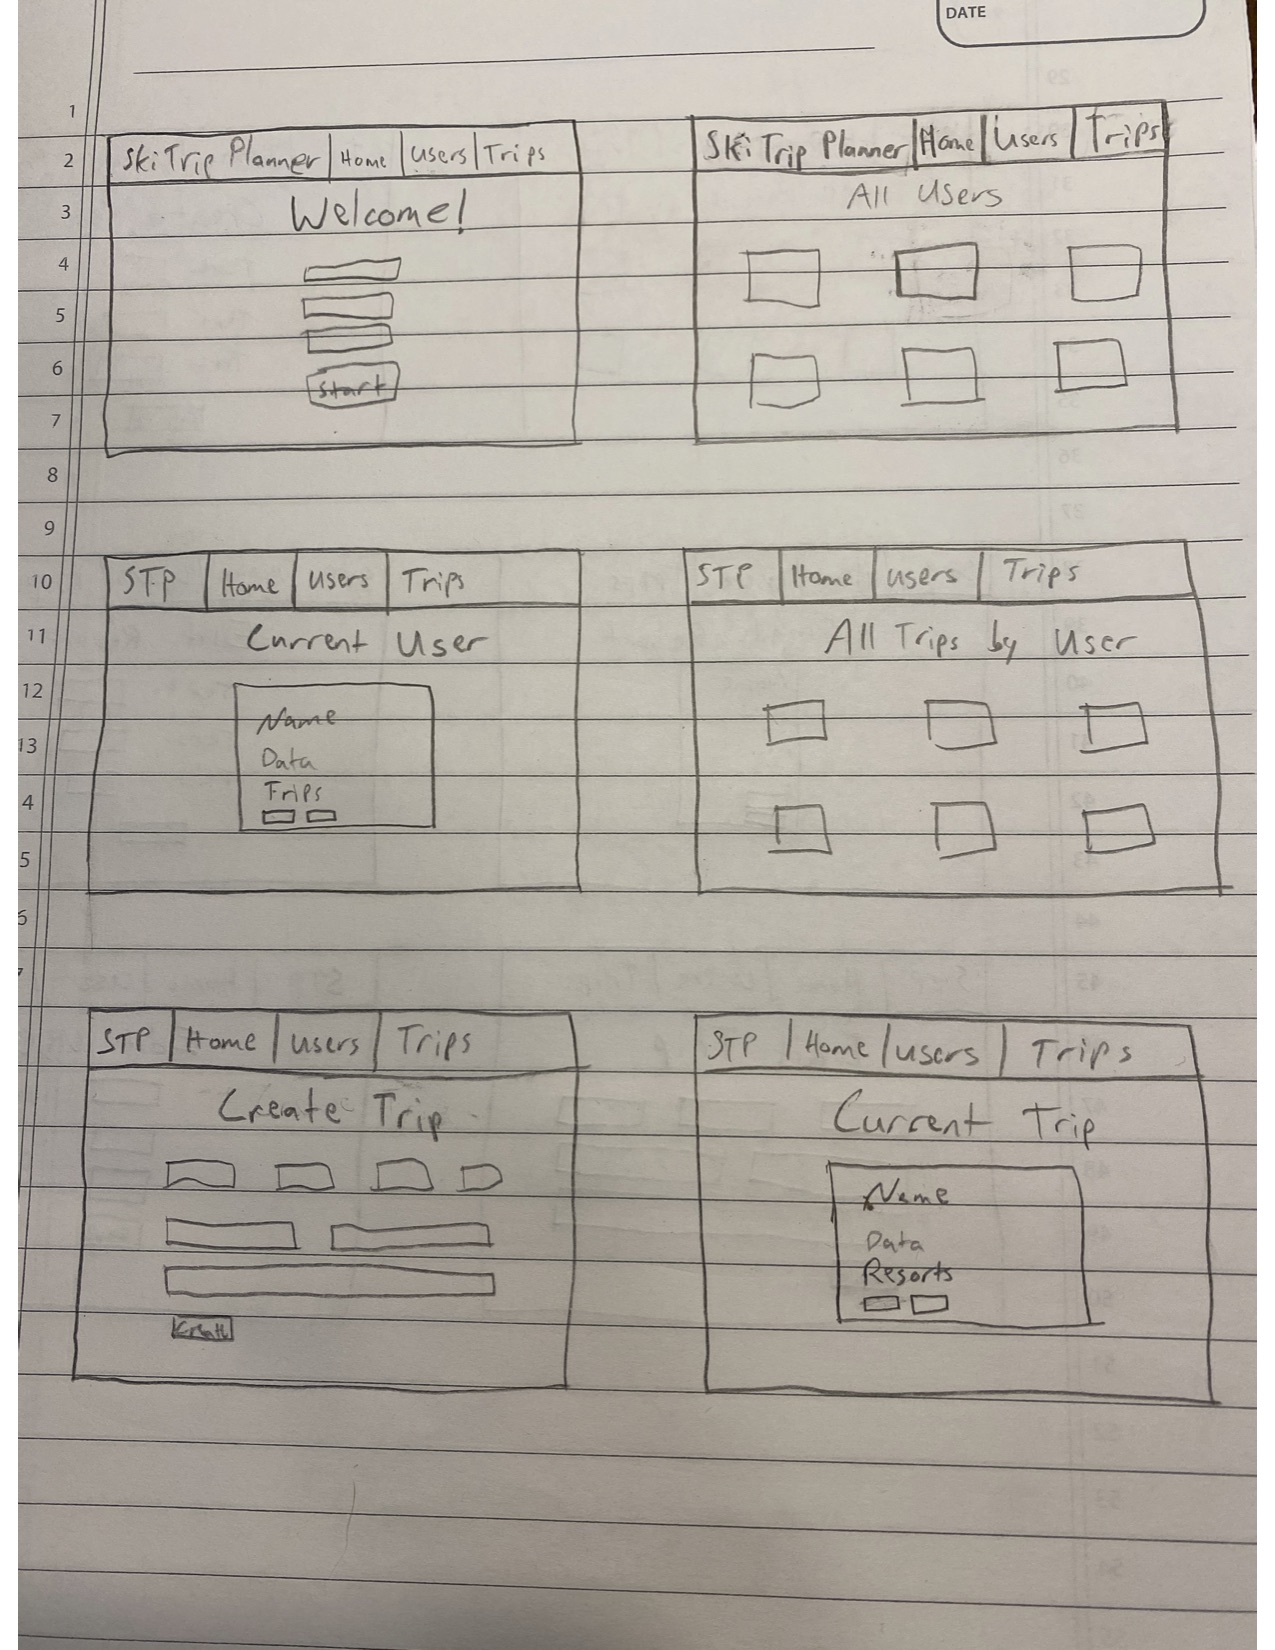 DATE
1
2
3
4
5
6
7
8
9
10
11
12
13
4
5
Ski Trip Planner Home Users Trips
Welcome!
Start
Ski Trip Planner Home Users Trips
All Users
STP Home Users Trips
Current User
Name
Data
Trips
STP Home Users Trips
All Trips by User
STP Home Users Trips
Create Trip
Create
STP Home Users Trips
Current Trip
Name
Data
Resorts